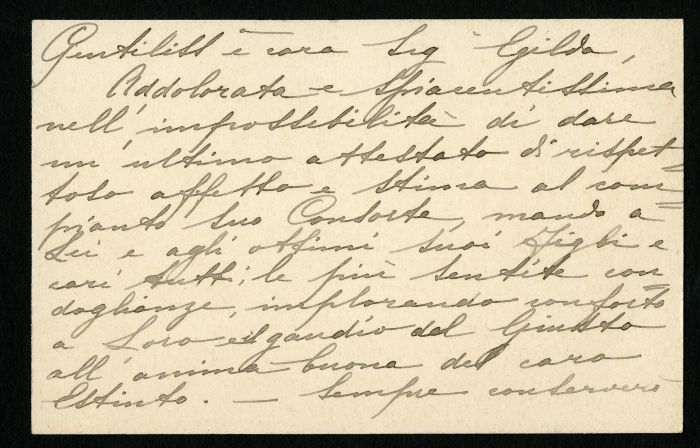 Gentiliss e cara Sig Gilda,
Addolorata e spiacentissima
nell'impossibilità di dare
un'ultimo attestato di rispet=
toso affetto e stima al com=
pianto suo Consorte, mando a
Lei e agli ottimi suoi Figli e
cari tutti; le più sentite con=
doglianze, implorando conforto
a Loro e il gaudio del Giusto
all'anima buona del caro
Estinto. — Sempre conserverò